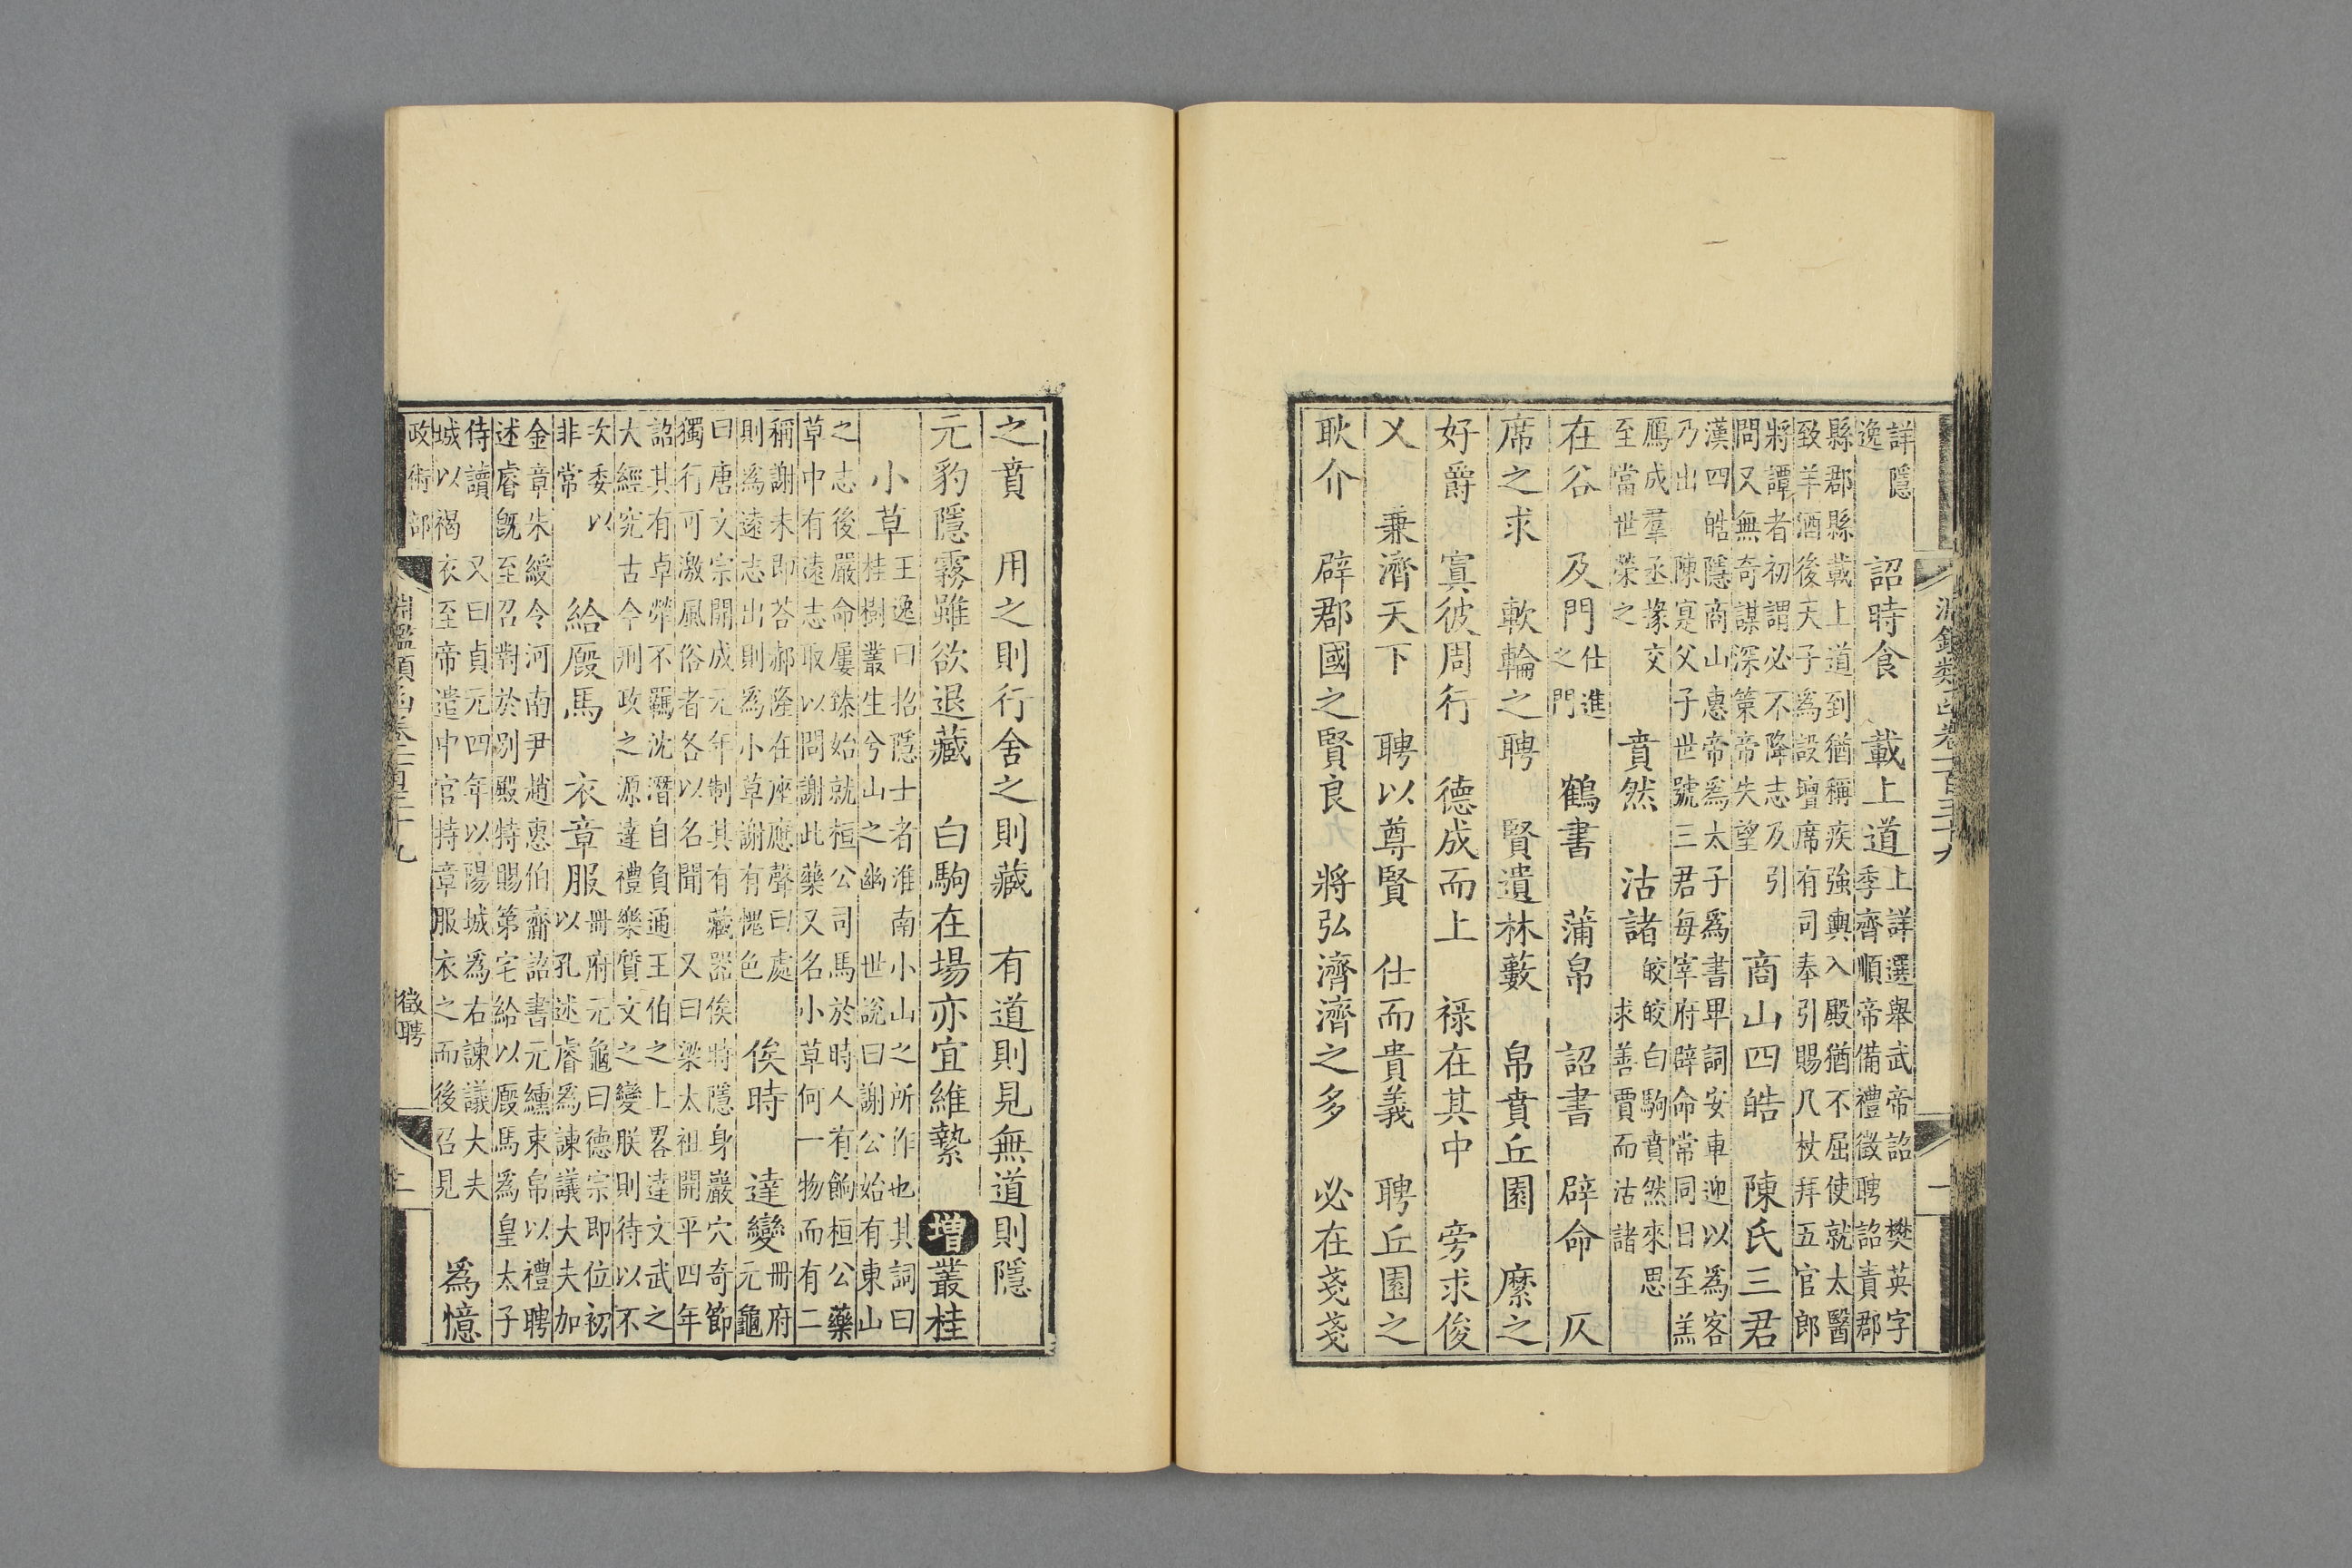 淵鑑類函卷一百三十九 一
詳隱
逸
詔時食 載上道
上詳選舉武帝詔 樊英字
季齊順帝備禮徵聘 詔責郡
縣郡縣載上道到猶稱疾強輿入殿猶不屈使就太醫
致羊酒後天子為設壇席有司奉引賜几杖拜五官郎
將譚者初謂必不降志及引
問又無奇謀深策帝失望
商山四皓 陳氏三君
漢四皓隱商山惠帝爲太子爲書卑詞安車迎以爲客
乃出 陳寔父子世號三君每宰府辟命常同日至羔
鴈成羣丞掾交
至當世榮之
賁然 沽諸
皎皎白駒賁然來思
求善賈而沽諸
在谷 及門
仕進
之門
鶴書 蒲帛 詔書 辟命 仄
席之求 軟輪之聘 賢遺林藪 帛賁丘園 縻之
好爵 寘彼周行 德成而上 祿在其中 旁求俊
乂 兼濟天下 聘以尊賢 仕而貴義 聘丘園之
耿介 辟郡國之賢良 將弘濟濟之多 必在戔戔
之賁 用之則行舍之則藏 有道則見無道則隱
元豹隱霧雖欲退藏 白駒在場亦宜維縶 增叢桂
小草
王逸曰招隱士者淮南小山之所作也其詞曰
桂樹叢生兮山之幽 世說曰謝公始有東山
之志後嚴命屢臻始就桓公司馬於時人有餉桓公藥
草中有遠志取以問謝此藥又名小草何一物而有二
稱謝未即荅郝隆在座應聲曰處
則爲遠志出則爲小草謝有愧色
俟時 達變
冊府
元龜
曰唐文宗開成元年制其有藏器俟時隱身巖穴奇節
獨行可激風俗者各以名聞 又曰梁太祖開平四年
詔其有卓犖不羈沈潛自負通王伯之上畧達文武之
大經究古今刑政之源達禮樂質文之變朕則待以不
次委以
非常
給廏馬 衣章服
冊府元龜曰德宗即位初
以孔述睿爲諫議大夫加
金章朱綬令河南尹趙惠伯齎詔書元纁束帛以禮聘
述睿旣至召對於別殿特賜第宅給以廏馬爲皇太子
侍讀 又曰貞元四年以陽城爲右諫議大夫
城以褐衣至帝遣中官持章服衣之而後召見
爲憶
政術部 淵鑑類函卷一百三十九 徵聘 二